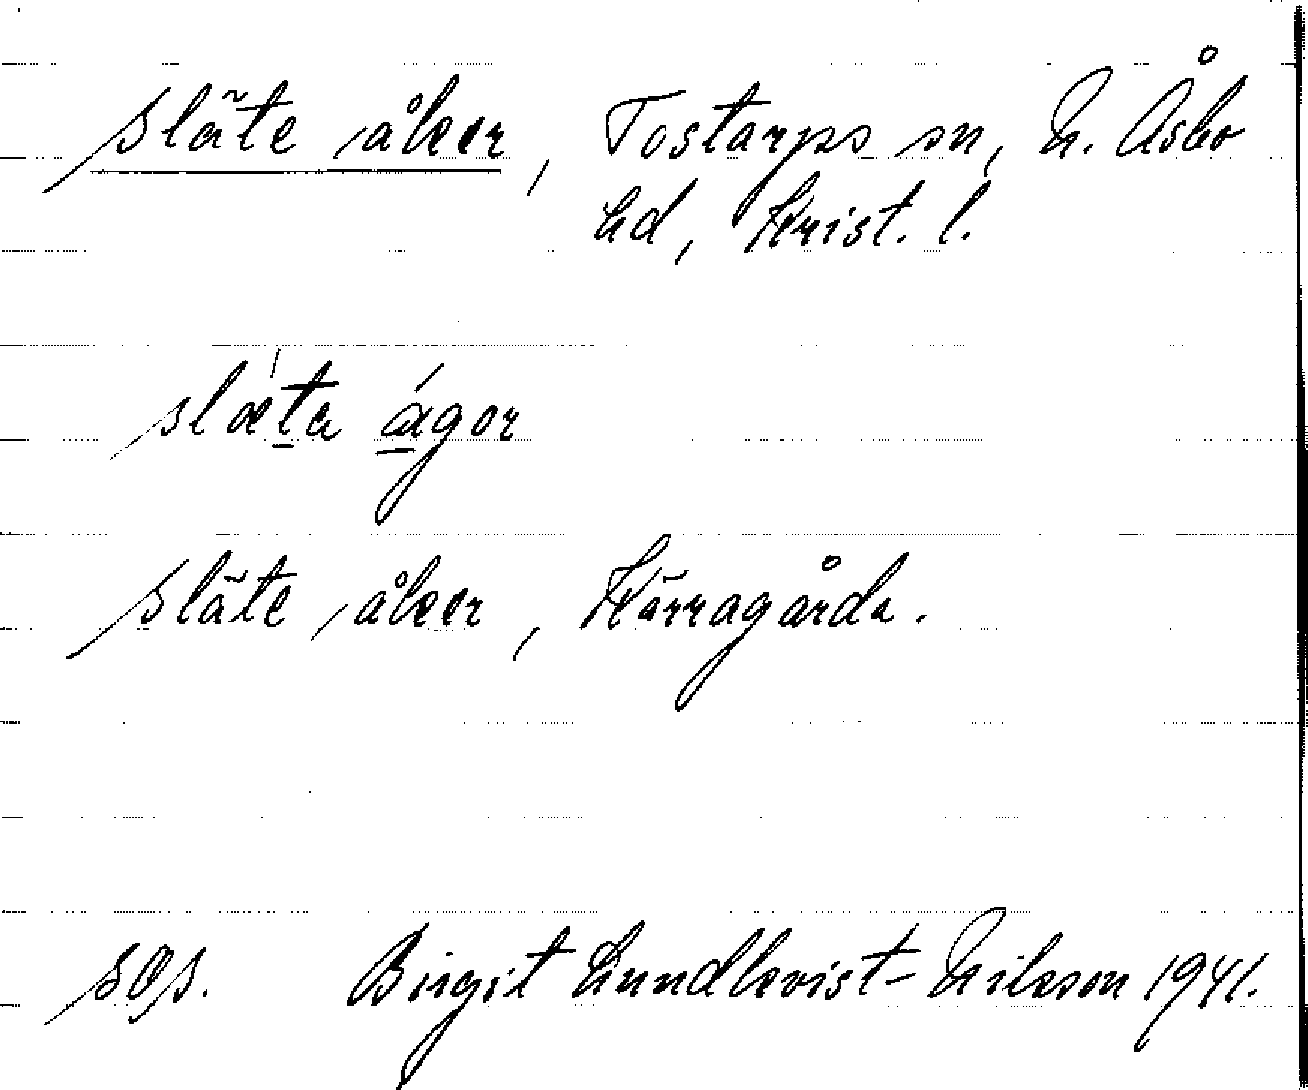 släte åker, Tostarps sn, N. Åsbo
hd, Krist. l.
slæta ágor
släte åker, Kärragårda.
sgs. Birgit Lundkvist-Nilsson 1941.